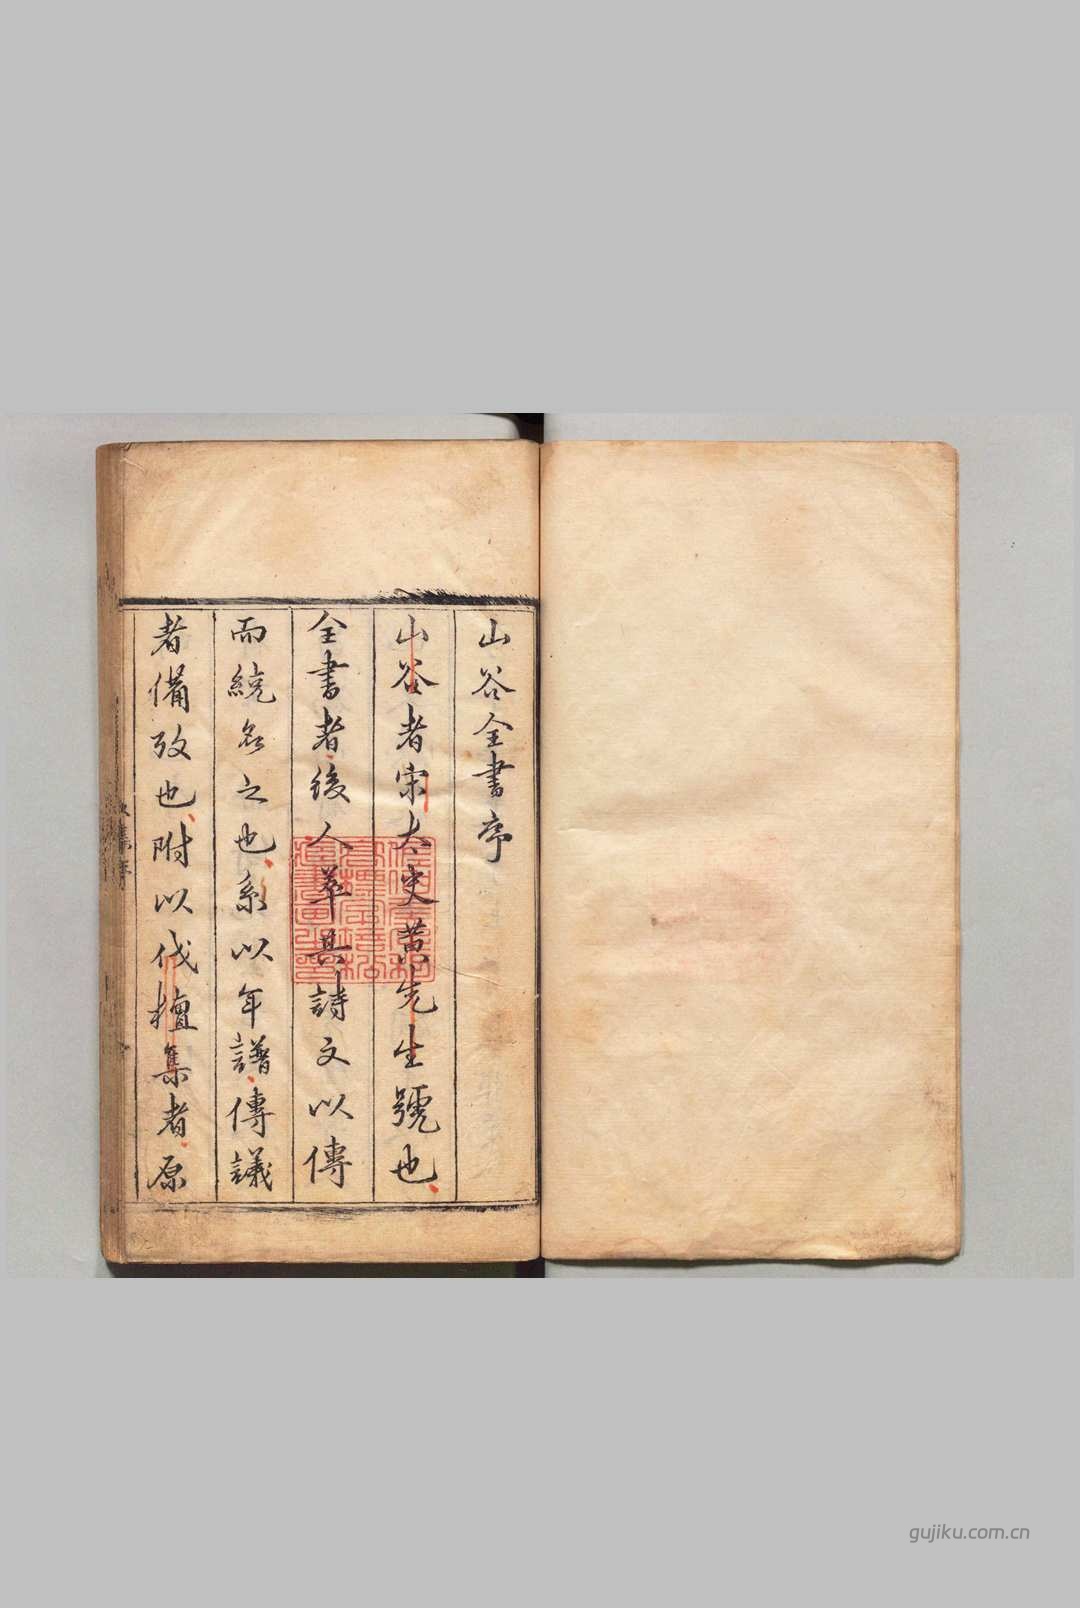 山谷全書序
山谷者宋太史黄先生號也
全書者後人萃其詩文以傳
而統名之也系以年譜傳議
者備攷也附以伐檀集者原
gujiku.com.cn